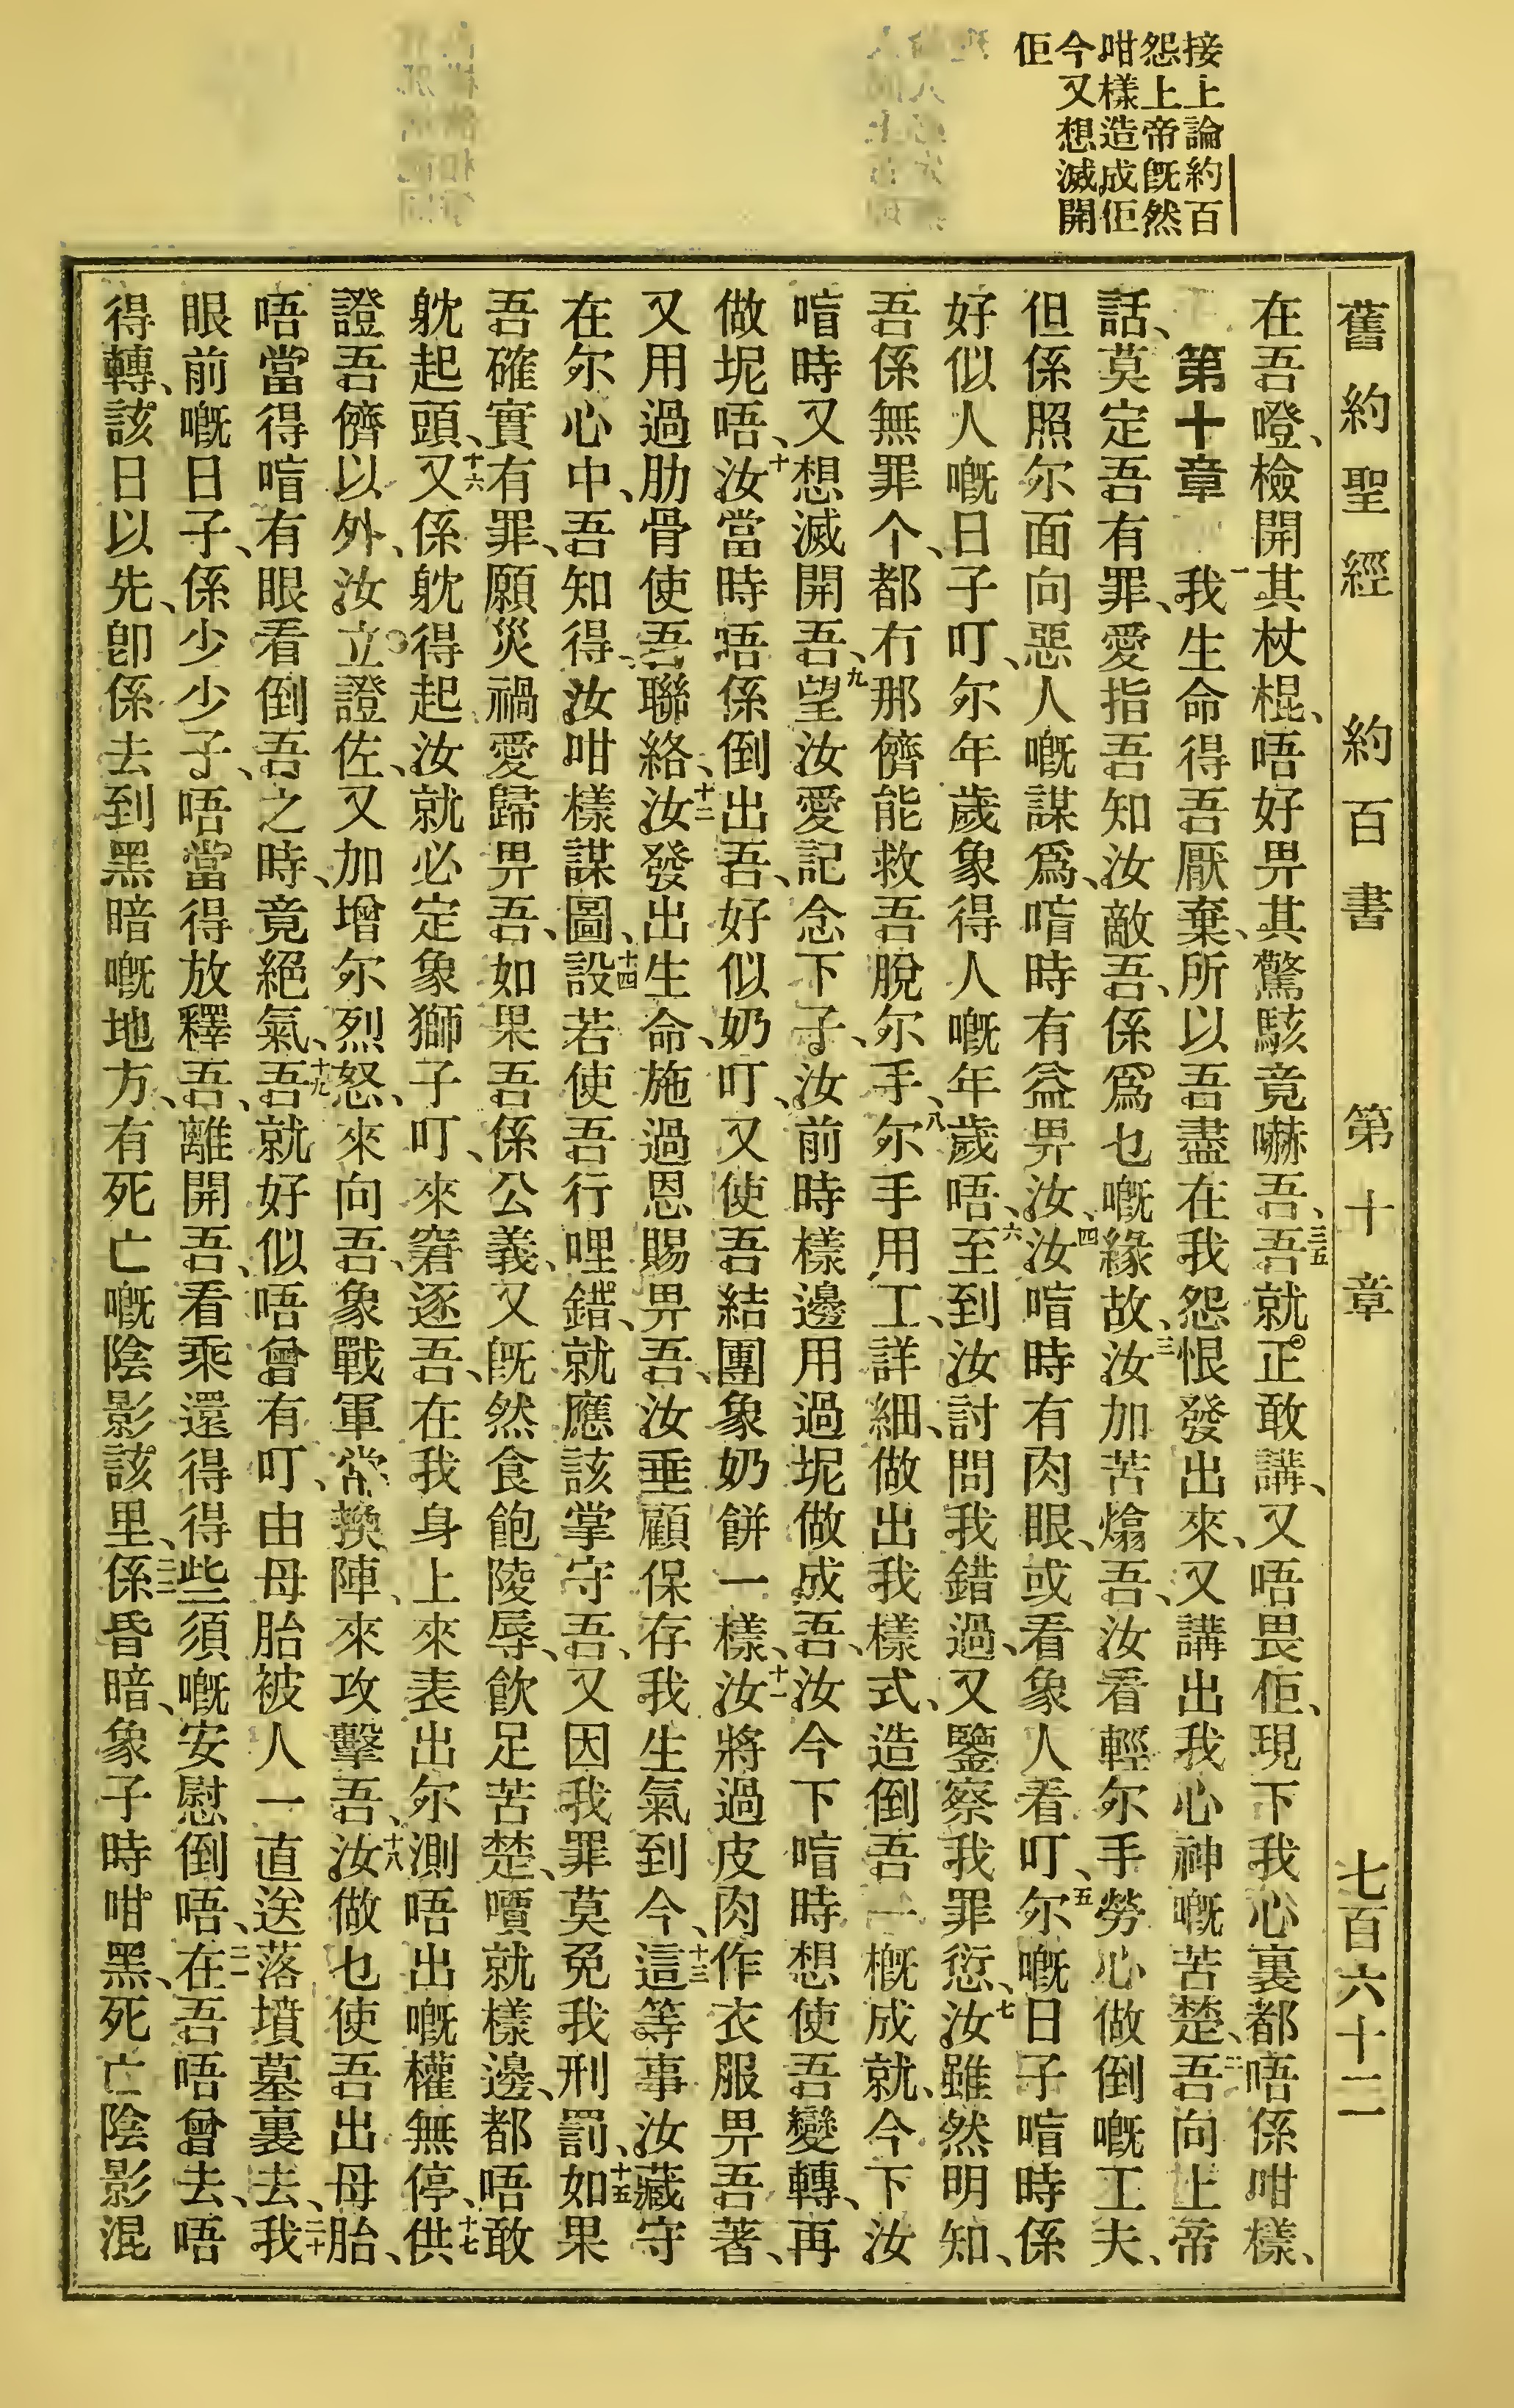 接上論約百
怨上帝旣然
咁樣造成佢
今又想滅開
佢
舊約聖經 約百書 第十章 七百六十二
在吾噔、檢開其杖棍、唔好畀其驚駭竟嚇吾、三五吾就正敢講、又唔畏佢、現下我心裏都唔係咁樣、
第十章 一我生命得吾厭棄、所以吾盡在我怨恨發出來、又講出我心神嘅苦楚、二吾向上帝
話、莫定吾有罪、愛指吾知汝敵吾、係爲乜嘅緣故、三汝加苦熻吾、汝看輕尔手勞心做倒嘅工夫、
但係照尔面向惡人嘅謀爲、喑時有益畀汝、四汝喑時有肉眼、或看象人看叮、五尔嘅日子喑時係
好似人嘅日子叮、尔年歲象得人嘅年歲唔、六至到汝討問我錯過、又鑒察我罪愆、七汝雖然明知、
吾係無罪个、都冇那儕能救吾脫尔手、八尔手用工、詳細做出我樣式、造倒吾一概成就、今下汝
喑時又想滅開吾、九望汝愛記念下子、汝前時樣邊用過坭做成吾、汝今下喑時想使吾變轉、再
做坭唔、十汝當時唔係倒出吾、好似奶叮、又使吾結團象奶餅一樣、十一汝將過皮肉作衣服畀吾著、
又用過肋骨使吾聯絡、十二汝發出生命、施過恩賜畀吾、汝垂顧保存我生氣到今、十三這等事汝藏守
在尔心中、吾知得、汝咁樣謀圖、十四設若使吾行哩錯、就應該掌守吾、又因我罪莫免我刑罰、十五如果
吾確實有罪、願災禍愛歸畀吾、如果吾係公義、又旣然食飽陵辱、飲足苦楚、嘖就樣邊、都唔敢
躭起頭、十六又係躭得起汝就必定象獅子叮、來窘逐吾、在我身上來表出尔測唔出嘅權無停、十七供
證吾儕以外、汝立證佐、又加增尔烈怒、來向吾、象戰軍常換陣、來攻擊吾、十八汝做乜使吾出母胎、
唔當得喑有眼看倒吾之時、竟絕氣、十九吾就好似唔曾有叮、由母胎被人一直送落墳墓裏去、二十我
眼前嘅日子、係少少子、唔當得放釋吾、離開吾、看乘還得得些須嘅安慰倒唔、二一在吾唔曾去、唔
得轉、該日以先、卽係去到黑暗嘅地方、有死亡嘅陰影該里、二二係昏暗、象子時咁黑、死亡陰影混